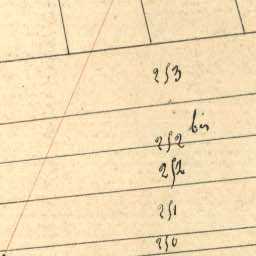 253
252 bis
252
251
250